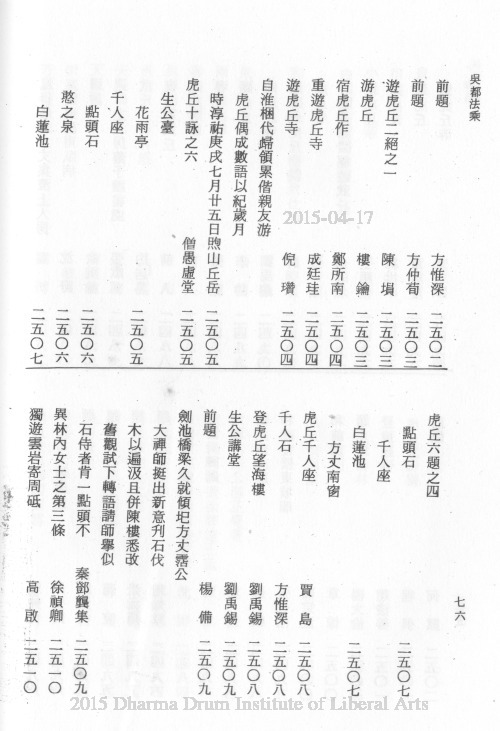 吳都法乘
前題 方惟深 二五〇二
前題 方仲荀 二五〇三
遊虎丘二絕之一 陳塤 二五〇三
游虎丘 樓鑰 二五〇三
宿虎丘作 鄭所南 二五〇四
重遊虎丘寺 成廷珪 二五〇四
遊虎丘寺 倪瓚 二五〇四
自淮梱代歸領累偕親友游
虎丘偶成數語以紀歲月
時淳祐庚戌七月廿五日煦山丘岳 二五〇五
虎丘十詠之六 僧愚慮堂 二五〇五
生公臺
花雨亭 二五〇五
千人座
點頭石 二五〇六
憨之泉 二五〇六
白蓮池 二五〇七
虎丘六題之四
點頭石 二五〇七
千人座
白蓮池 二五〇七
方丈南窗
虎丘千人座 賈島 二五〇八
千人石 方惟深 二五〇八
登虎丘望海樓 劉禹錫 二五〇八
生公講堂 劉禹錫 二五〇九
前題 楊備 二五〇九
劍池橋梁久就傾圮方丈霑公
大禪師挺出新意刋石伐
木以遍汲且併陳樓悉改
舊觀試下轉語請師舉似
石侍者肯一點頭不 秦郎龔集 二五〇九
異林內女士之第三條 徐禎卿 二五一〇
獨遊雲岩寄周砥 高啟 二五一〇
七六
2015-04-17
2015 Dharma Drum Institute of Liberal Arts